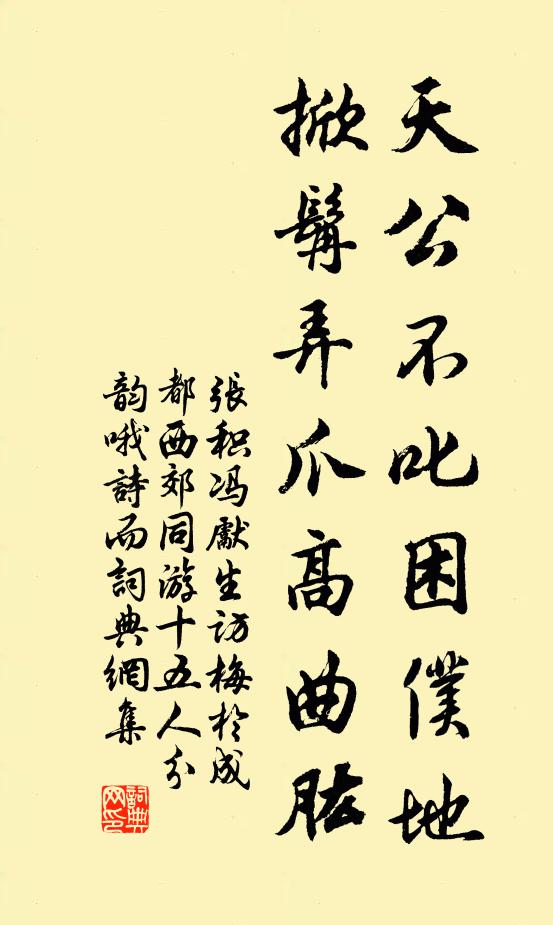 天公不叱困僕地
掀髯弄爪高曲肱
張积冯獻生访梅於成
都西郊同游十五人分
韵哦詩而詞典網集
詞典
网印